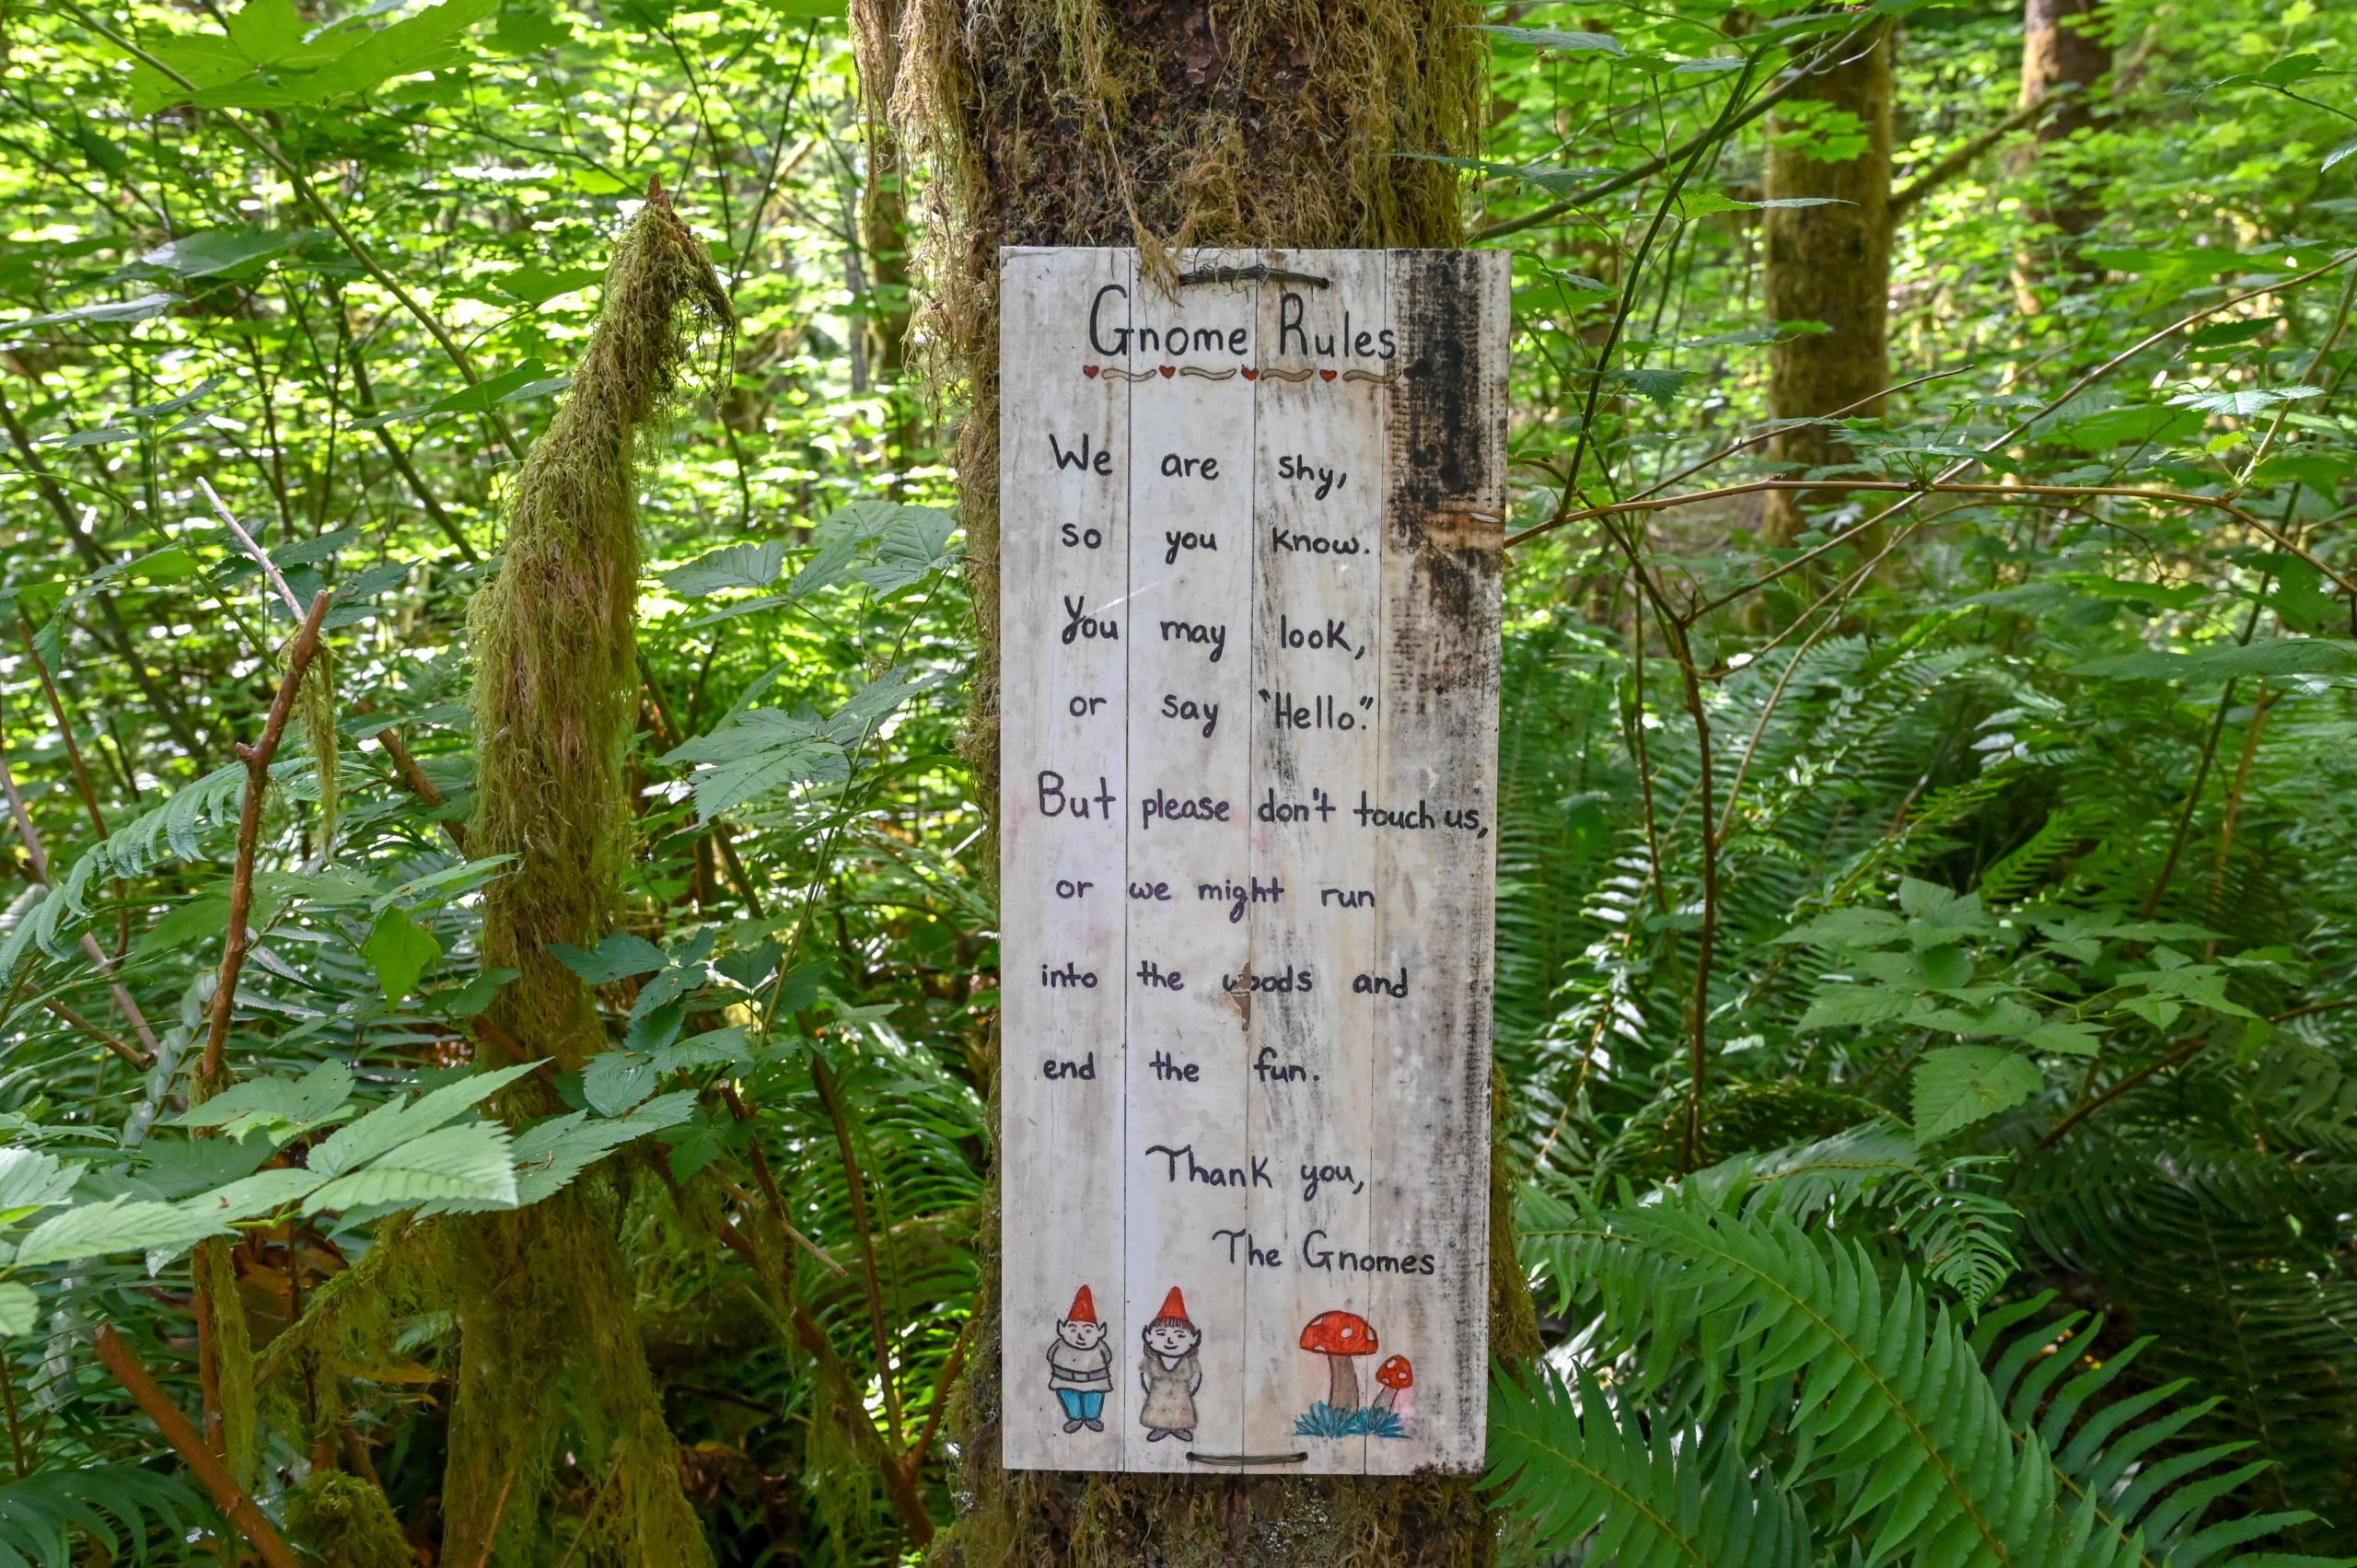 Gnome Rules
We are shy,
so you know.
You may look,
or say "Hello."
But please don't touch us,
or we might run
into the woods and
end the fun.
Thank you,
The Gnomes